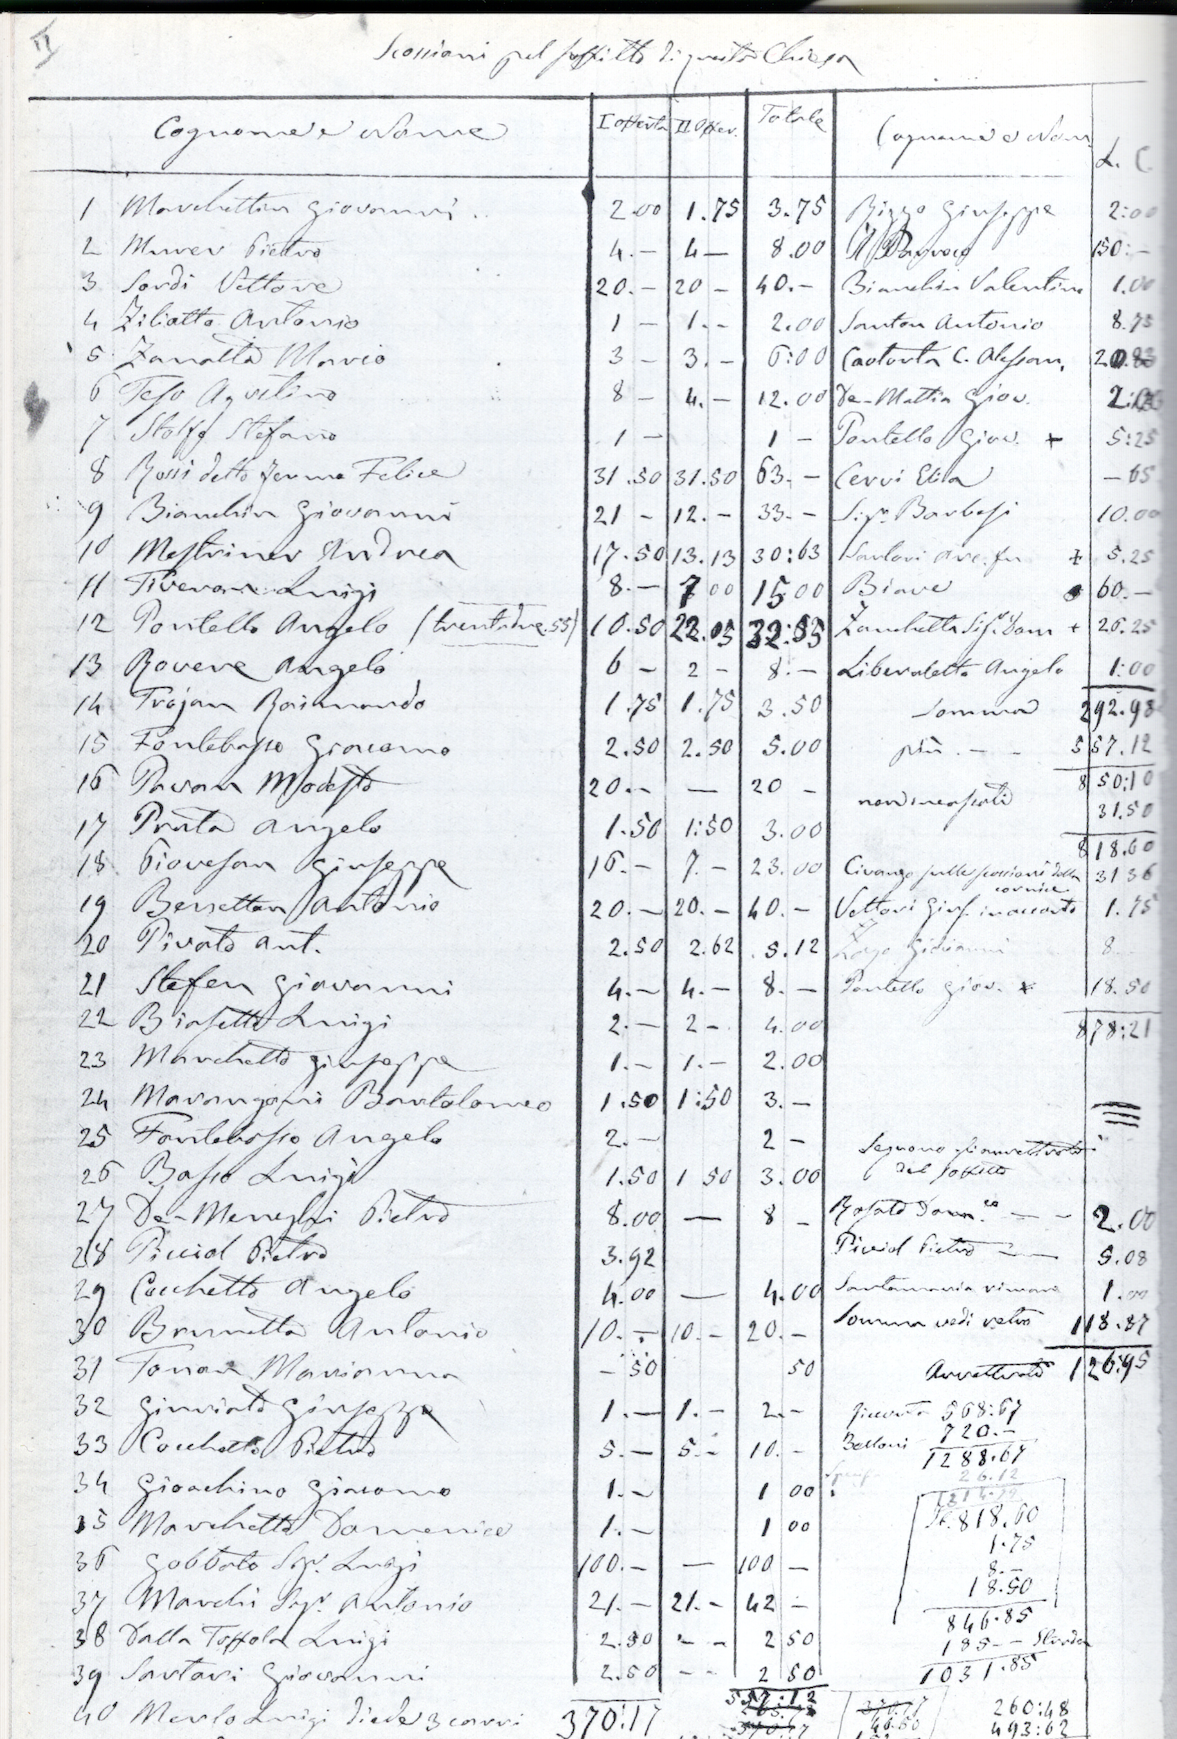 II
Scossioni pel soffitto di questa Chiesa
Cognome e Nome I offerta II Offer. Totale Cognome e Nom L. C.
1 Marchettin Giovanni 2.00 1.75 3.75 Bizzo Giuseppe 2:00
2 Murer Pietro 4.- 4- 8.00 Il Parroco 150:-
3 Sordi Vettore 20.- 20- 40.- Bianchin Valentino 1.00
4 Ziliotto Antonio 1- 1.- 2.00 Santon Antonio 8.75
5 Zanatta Mario 3- 3.- 6:00 C. Alessan.
6 Teso Aquilino 8- 4.- 12.00 De-Mattia Giov.
7 Stolfo Stefano 1- 1- Pontello Giov. + 5:25
8 Rossi detto Felice 31.50 31.50 63.- Cervi Elia -65
9 Bianchin Giovanni 21- 12.- 33.- Sigr. Barbesi 10.00
10 Mestriner Andrea 17.50 13.13 30:63 + 5.25
11 Tiveron Luigi 8.- 7 00 15 00 Biave 60.-
12 Pontello Angelo (trentadue.55) 10.50 22.05 Zanchetta Sigr. Dom + 26.25
13 Rovere Angelo 6- 2- 8.- Liberaletto Angelo 1:00
14 Trojan Raimondo 1.75 1.75 3.50 Somma 292.98
15 Fontebasso Giacomo 2.50 2.50 5.00 più .-- 557.12
16 Pavan Modesto 20.- - 20- 850:10
non incassati 31.50
17 Prata Angelo 1.50 1:50 3.00 818.60
18 Piovesan Giuseppe 16.- 7.- 23.00 Civanzo sulle scossioni della cornice 3136
19 Bersettan Antonio 20.- 20.- 40.- Vettori Gius. in acconto 1.75
20 Pivato Ant. 2.50 2.62 5.12 Giovanni 8
21 Stefen Giovanni 4.- 4.- 8.- Pontello Giov. x 18.50
22 Biasetto Luigi 2.- 2-. 4.00 878:21
23 Marchetto Giuseppe 1.- 1.- 2.00
24 Marangoni Bartolomeo 1.50 1:50 3.-
25 Fontebasso Angelo 2.- 2-
26 Basso Luigi 1.50 1 50 3.00 del soffitto
27 De-Meneghi Pietro 8.00 - 8- Rosato Domco -- 2.00
28 Piccol Pietro 3.92 Piccol Pietro -- 5.08
29 Cecchetto Angelo 4.00 - 4.00 Santamaria 1.00
30 Brunetta Antonio 10.- 10.- 20.- Somma vedi retro 118.87
31 Tonon Marianna -50 50 126:95
32 Giuseppe 1.- 1.- 2.- 568:67
33 Cocchetto Pietro 5.- 5.- 10.- Belloni 720.-
1288.67
34 Gioachino Giacomo 1.- 1 00 26.12
35 Marchetto Domenico 1.- 1 00 818.60
1.75
36 Gobbato Sigr. Luigi 100.- - 100- 8.-
37 Marchi Sigr. Antonio 21.- 21.- 42- 18.50
846.85
38 Dalla Toffola Luigi 2.50 -- 2 50 185--
39 Santari Giovanni 2.50 -- 2 50 1031.85
557:12
40 Merlo Luigi diede 3 carri 370:17 260:48
493:62